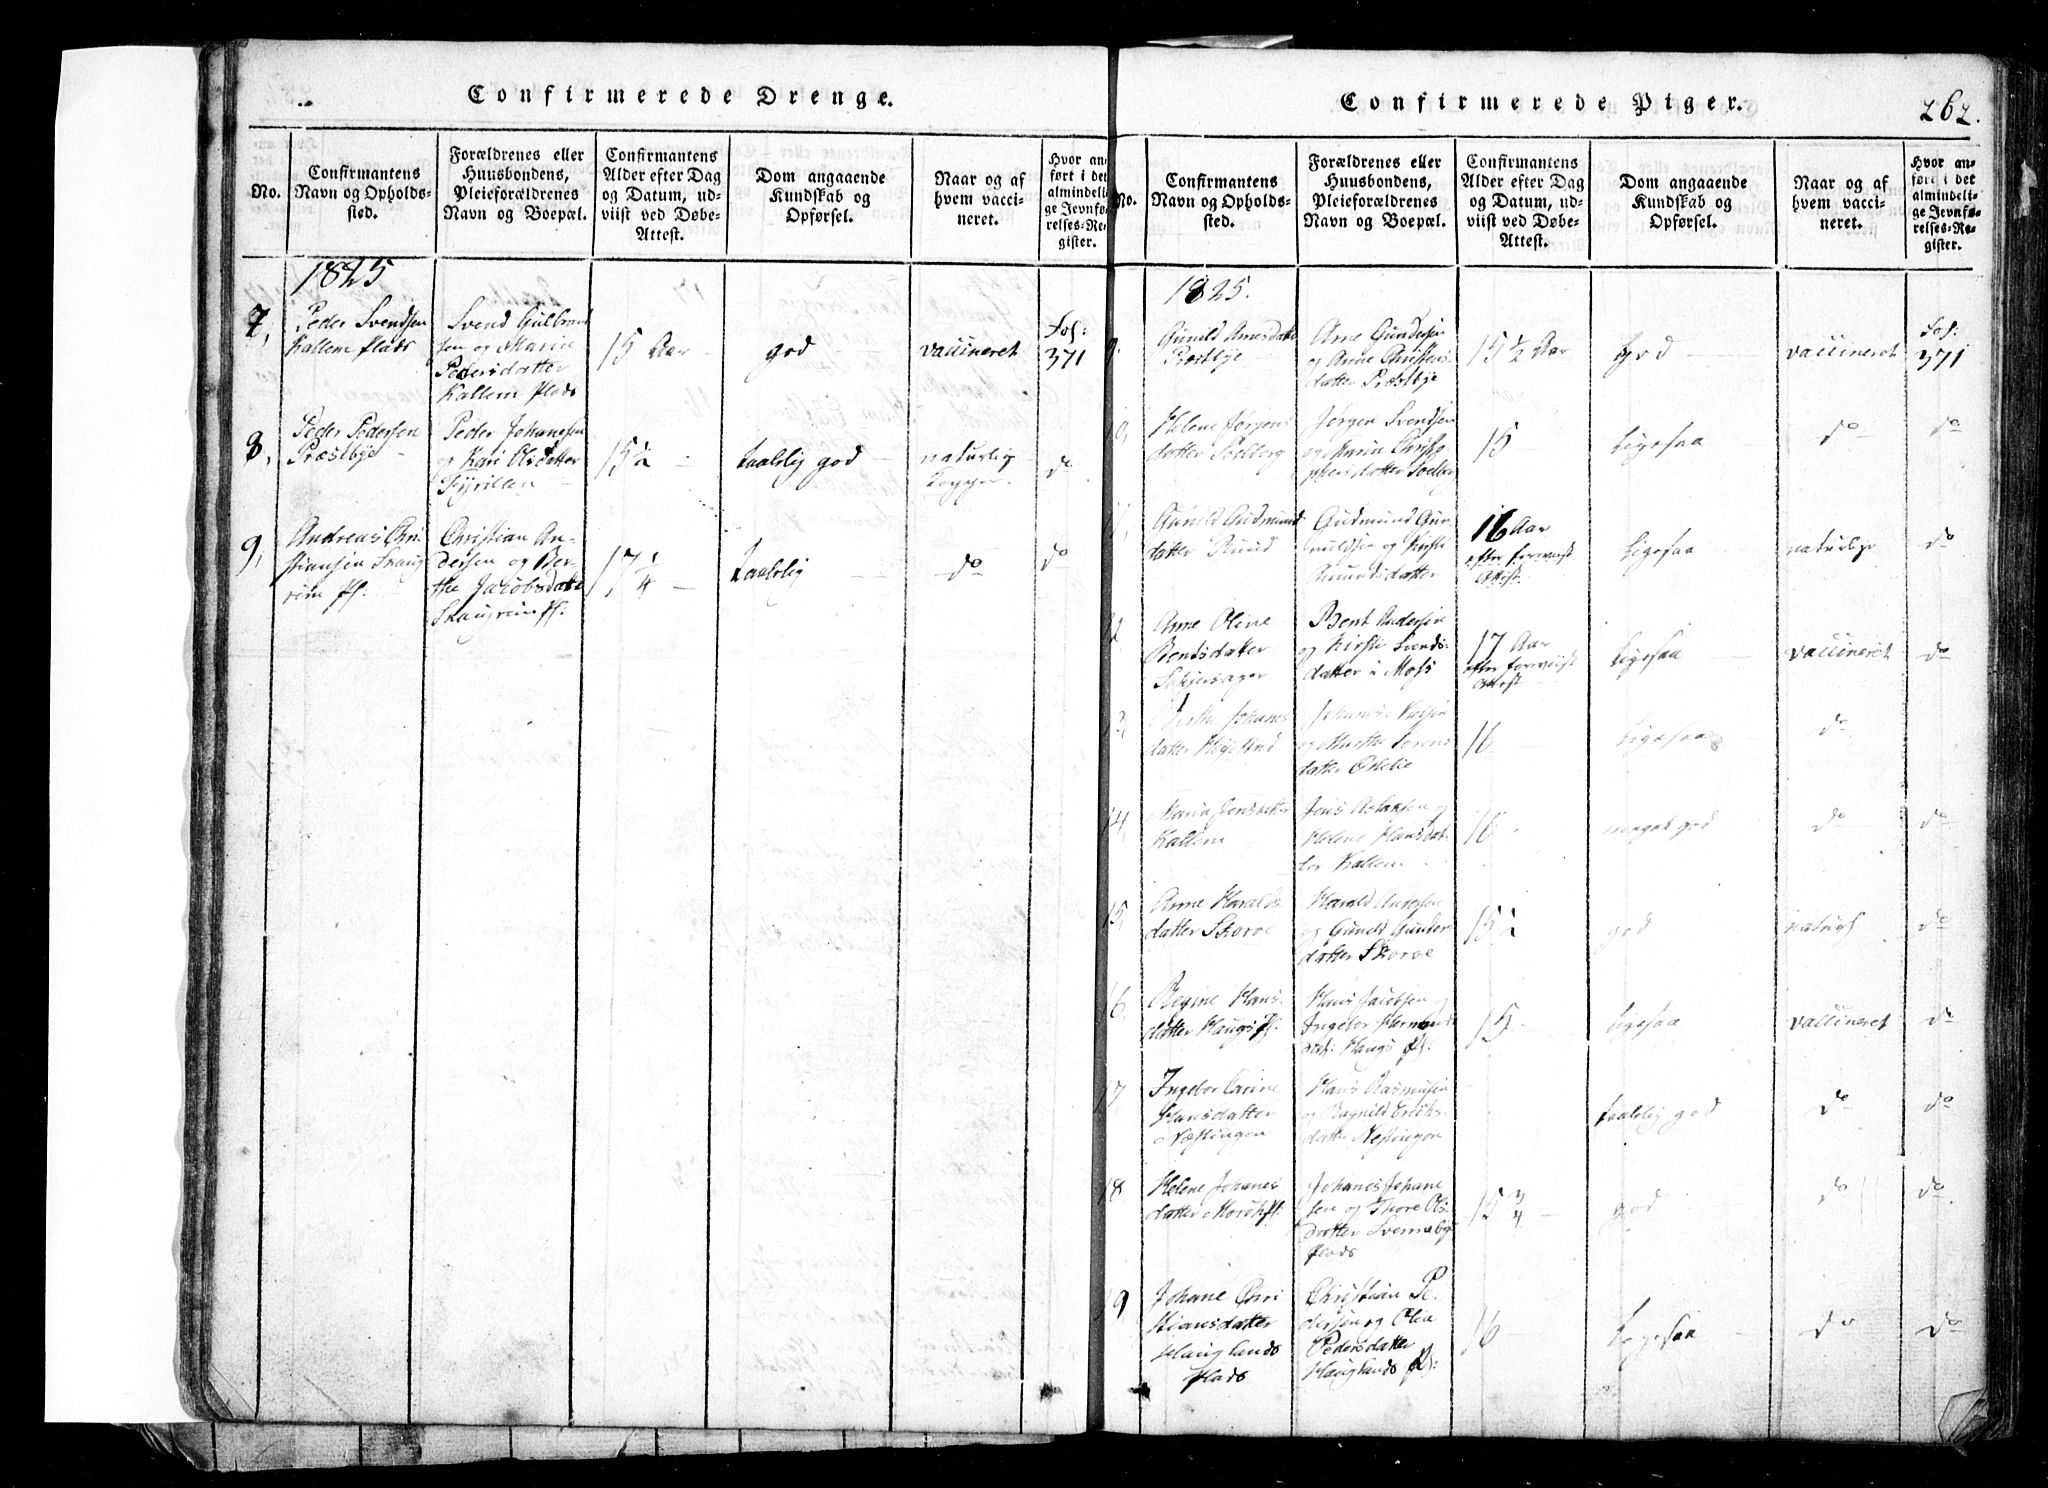 Confirmerede Drenge.
No.
Confirmantens
Navn og Opholds-
sted.
Forældrenes eller
Huusbondens,
Pleieforældrenes
Navn og Boepæl.
Confirmantens
Alder efter Dag
og Datum, ud-
viist ved Døbe-
Attest.
Dom angaaende
Kundskab og
Opførsel.
Naar og af
hvem vacci-
neret.
Hvor an-
ført i det
almindeli-
ge Jevnfø-
relses-Re-
gister.
1825
7,
Peder Svendsen
Kallem Plads
Svend Gulbrand
sen og Marie
Pedersdatter
Kallem Plads
15 Aar
god
vaccineret
Fol:
371
8,
Peder Pedersen
Præstbye
Peder Johanesen
og Kari Olsdatter
15½
taalelig god
naturlig
Kopper
do
9,
Andreas Chri
stiansen Skaug
rim Pl.
Christian An-
dersen og Ber-
the Jacobsdatter
Skaugrim Pl:
17 1/4
taalelig
do
do
Confirmerede Piger.
262.
No.
Confirmantens
Navn og Opholds-
sted.
Forældrenes eller
Huusbondens,
Pleieforældrenes
Navn og Boepæl.
Confirmantens
Alder efter Dag
og Datum, ud-
viist ved Døbe-
Attest.
Dom angaaende
Kundskab og
Opførsel.
Naar og af
hvem vacci-
neret.
Hvor an-
ført i det
almindeli-
ge Jevnfø-
relses-Re-
gister.
1825.
9.
Gunild Arnesdatter
Præstbye
Arne Gundersen
og Anne Christens
datter Præstbye
15 1/2 Aar
god
vaccineret
Fol:
371
10,
Helene Jørgens
datter Solberg
Jørgen Svendsen
og Maria Christo
phersdatter Solberg
15
ligesaa
do
do
11,
Gunild Gudmunds
datter Ruud
Gudmund Gun
nuldsen og Kirsti
Amundsdatter
16 Aar
efter foreviist
Attest
ligesaa
naturlige
do
12
Anne Oline
Bentsdatter
Bent Andersen
og Kirsti Svends-
datter i Moss
17 Aar
efter foreviist
Attest
ligesaa
vaccineret
do
13,
Berthe Johanes
datter
Johanes
og Marthe Sorens
datter
16
ligesaa
do
14,
Maria Jensdatter
Kallem
Jens Aslaksen og
Helene Hansdat-
ter Kallem
16
meget god
do
do
15,
Anne Haralds
datter Skoroe
Harald Andersen
og Gunild Gunder
datter Skoroe
15½
god
naturl
do
16
Regine Hans-
datter Haugs Pl.
Hans Jacobsen og
Ingebor
dat: Haugs Pl:
15
ligesaa
vaccineret
do
17
Ingebor Carine
Hansdatter
Næstingen
Hans Rasmusen
og Ragnild Eriks-
datter Nestingen
taalelig god
do
do
18
Helene Johanes
datter Moreth Pl.
Johanes Johane
sen og Thore Ols
datter Svennebye
Plads
15 3/4
god
do
do
19
Johane Chri
stiansdatter
Hauglands
Plads
Christian Pe-
dersen og Olea
Pedersdatter
Hauglands Pl:
16
ligesaa
do
do